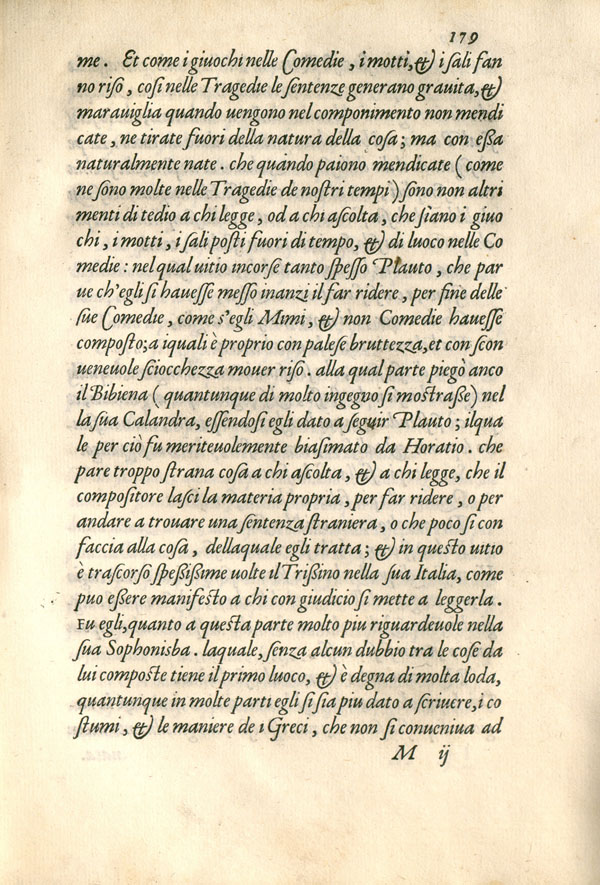 179
me. Et come i giuochi nelle Comedie, i motti, & i sali fan
no riso, cosi nelle Tragedie le sentenze generano grauita, &
marauiglia quando uengono nel componimento non mendi
cate, ne tirate fuori della natura della cosa; ma con essa
naturalmente nate. che quando paiono mendicate (come
ne sono molte nelle Tragedie de nostri tempi) sono non altri
menti di tedio a chi legge, od a chi ascolta, che siano i giuo
chi, i motti, i sali posti fuori di tempo, & di luoco nelle Co
medie: nel qual uitio incorse tanto spesso Plauto, che par
ue ch'egli si hauesse messo inanzi il far ridere, per fine delle
sue Comedie, come s'egli Mimi, & non Comedie hauesse
composto; a iquali è proprio con palese bruttezza, et con scon
ueneuole sciocchezza mouer riso. alla qual parte piegò anco
il Bibiena (quantunque di molto ingegno si mostrasse) nel
la sua Calandra, essendosi egli dato a seguir Plauto; ilqua
le per ciò fu meriteuolemente biasimato da Horatio. che
pare troppo strana cosa a chi ascolta, & a chi legge, che il
compositore lasci la materia propria, per far ridere, o per
andare a trouare una sentenza straniera, o che poco si con
faccia alla cosa, dellaquale egli tratta; & in questo uitio
è trascorso spessissime uolte il Trissino nella sua Italia, come
puo essere manifesto a chi con giudicio si mette a leggerla.
Fu egli, quanto a questa parte molto piu riguardeuole nella
sua Sophonisba. laquale, senza alcun dubbio tra le cose da
lui composte tiene il primo luoco, & è degna di molta loda,
quantunque in molte parti egli si sia piu dato a scriuere, i co
stumi, & le maniere de i Greci, che non si conueniua ad
M ij